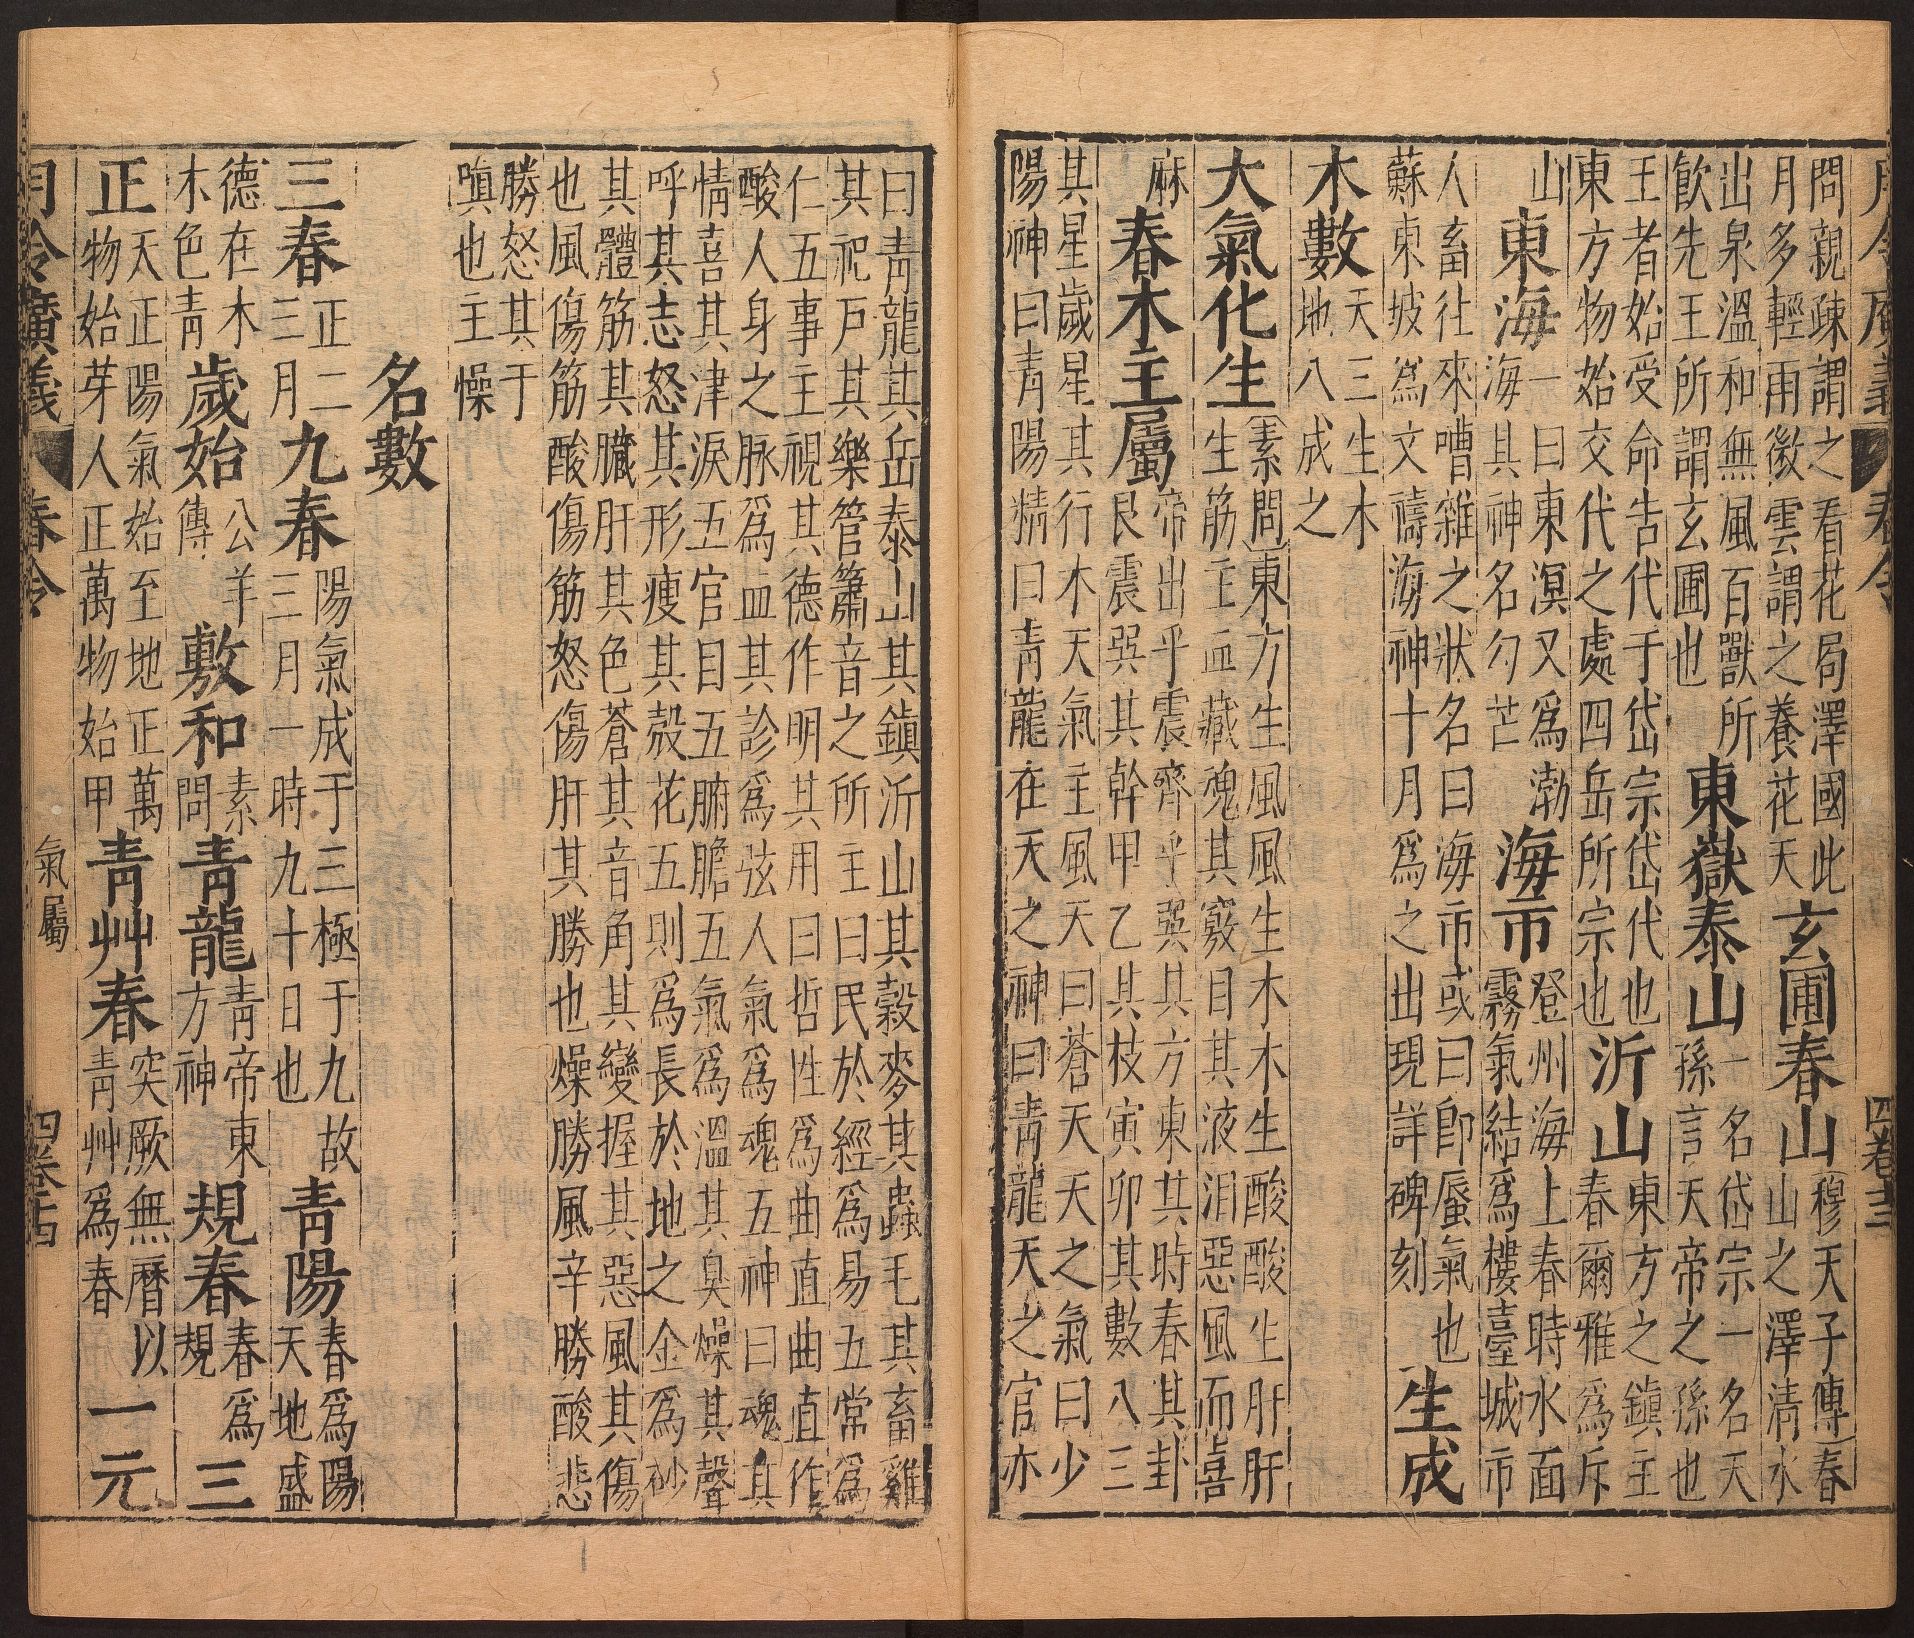 月令廣義 春令 四卷 十三
問親疎謂之看花局澤國此月多輕雨微雲謂之養花天 玄圃春山 穆天子傳春山之澤清水
出泉溫和無風百獸所飲先王所謂玄圃也 東嶽泰山 一名岱宗一名天孫言天帝之孫也
王者始受命告代于岱宗岱代也東方物始交代之處四岳所宗也 沂山 東方之鎮主春爾雅爲斥
山 東海 一曰東溟又爲渤海其神名勾芒 海市 登州海上春時水面霧氣結爲樓臺城市
人畜往來嘈雜之狀名曰海市或曰卽蜃氣也蘇東坡爲文禱海神十月爲之出現詳碑刻 生成
木數 天三生木地八成之
大氣化生 素問東方生風風生木木生酸酸生肝肝生筋主血藏魂其竅目其液泪惡風而喜
麻 春木主屬 帝出乎震齊乎巽其方東其時春其卦艮震巽其幹甲乙其枝寅卯其數八三
其星歲星其行木天氣主風天曰蒼天天之氣曰少陽神曰靑陽精曰靑龍在天之神曰靑龍天之官亦
曰靑龍其岳泰山其鎮沂山其穀麥其蟲毛其畜雞其祀戶其樂管簫音之所主曰民於經爲易五常爲
仁五事主視其德作明其用曰哲性爲曲直曲直作酸人身之脉爲血其診爲弦人氣爲魂五神曰魂其
情喜其津淚五官目五腑膽五氣爲溫其臭燥其聲呼其志怒其形瘦其殼花五則爲長於地之金爲砂
其體筋其臟肝其色蒼其音角其變握其惡風其傷也風傷筋酸傷筋怒傷肝其勝也燥勝風辛勝酸悲
勝怒其于嗔也主燥
名數
三春 正二三月 九春 陽氣成于三極于九故三月一時九十日也 靑陽 春爲陽天地盛
德在木木色靑 歲始 公羊傳 敷和 素問 靑龍 靑帝東方神 規春 春爲規 三
正 天正陽氣始至地正萬物始芽人正萬物始甲 靑艸春 突厥無曆以靑艸爲春 一元
月令廣義 春令 氣屬 四卷 十四